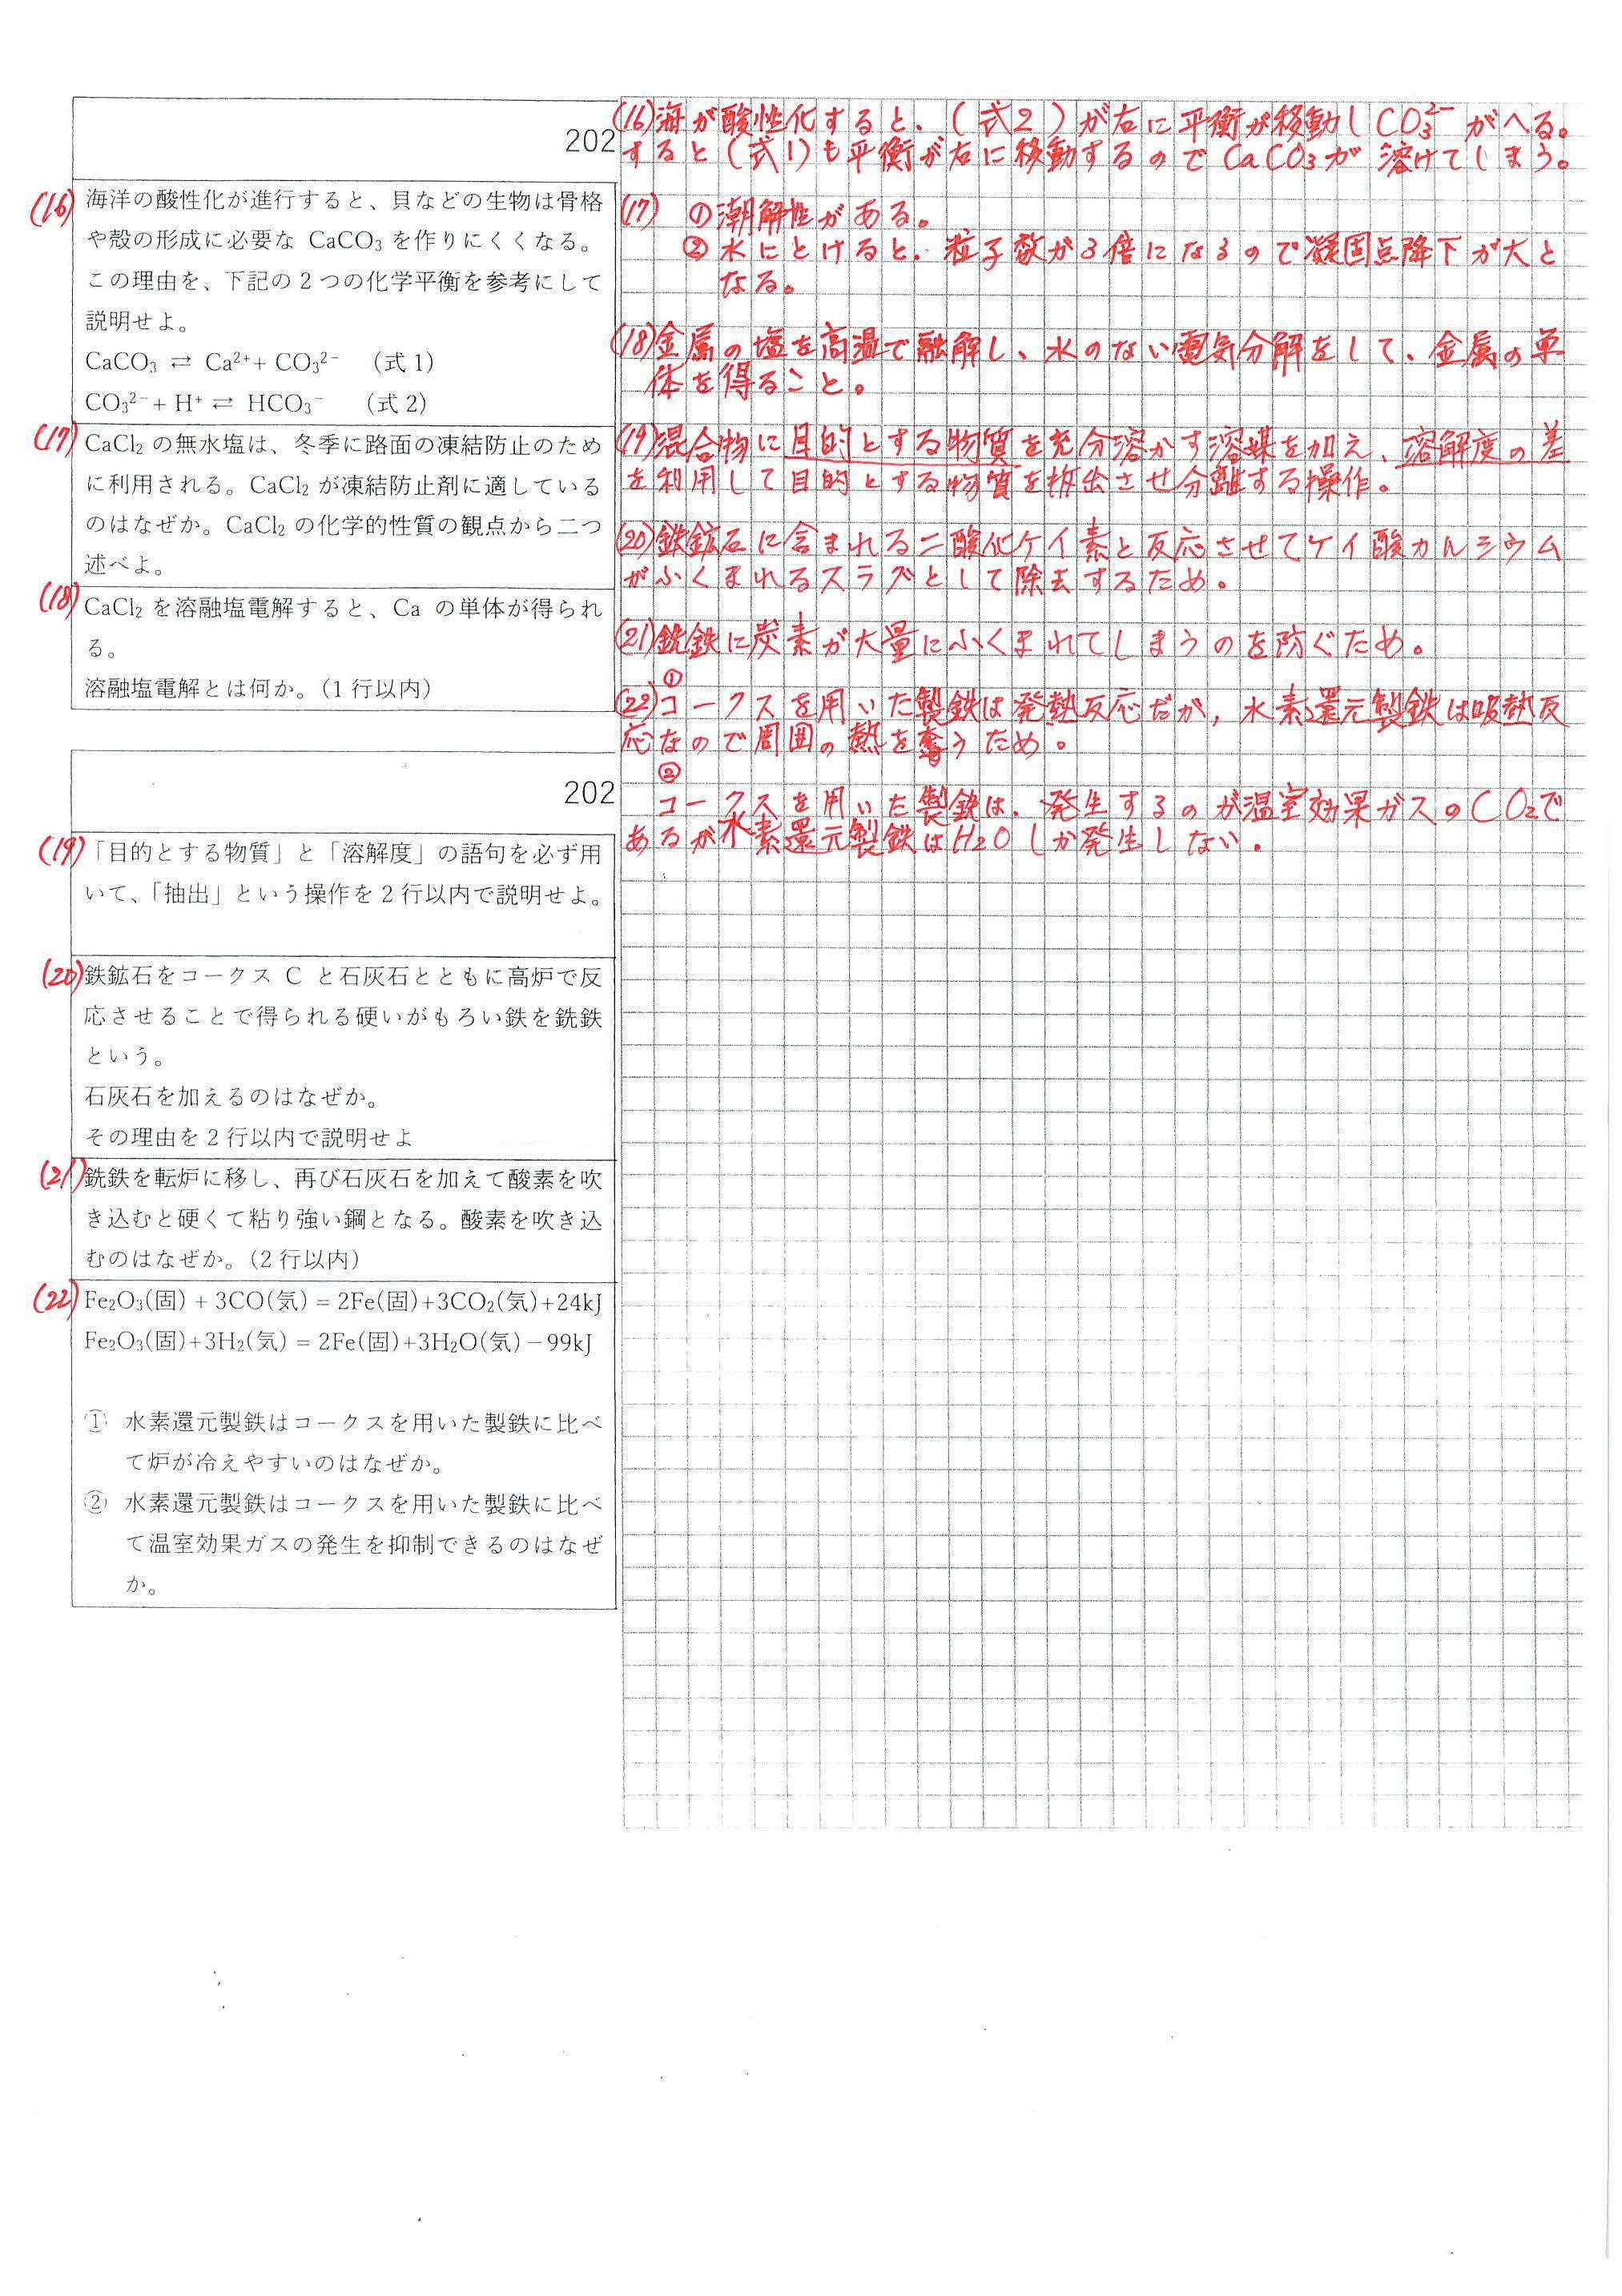 202
(16) 海洋の酸性化が進行すると、貝などの生物は骨格
や殻の形成に必要な CaCO₃ を作りにくくなる。
この理由を、下記の2つの化学平衡を参考にして
説明せよ。
CaCO₃ ⇄ Ca²⁺+ CO₃²⁻ (式1)
CO₃²⁻+ H⁺⇄ HCO₃⁻ (式2)
(17) CaCl₂ の無水塩は、冬季に路面の凍結防止のため
に利用される。CaCl₂ が凍結防止剤に適している
のはなぜか。CaCl₂ の化学的性質の観点から二つ
述べよ。
(18) CaCl₂ を溶融塩電解すると、Ca の単体が得られ
る。
溶融塩電解とは何か。(1行以内)
202
(19) 「目的とする物質」と「溶解度」の語句を必ず用
いて、「抽出」という操作を2行以内で説明せよ。
(20) 鉄鉱石をコークス C と石灰石とともに高炉で反
応させることで得られる硬いがもろい鉄を銑鉄
という。
石灰石を加えるのはなぜか。
その理由を2行以内で説明せよ
(21) 銑鉄を転炉に移し、再び石灰石を加えて酸素を吹
き込むと硬くて粘り強い鋼となる。酸素を吹き込
むのはなぜか。(2行以内)
(22) Fe₂O₃(固) + 3CO(気) = 2Fe(固)+3CO₂(気)+24kJ
Fe₂O₃(固)+3H₂(気) = 2Fe(固)+3H₂O(気)−99kJ
① 水素還元製鉄はコークスを用いた製鉄に比べ
て炉が冷えやすいのはなぜか。
② 水素還元製鉄はコークスを用いた製鉄に比べ
て温室効果ガスの発生を抑制できるのはなぜ
か。
(16) 海が酸性化すると、(式2)が右に平衡が移動しCO₃²⁻がへる。
すると(式1)も平衡が右に移動するのでCaCO₃が溶けてしまう。
(17) ①潮解性がある。
②水にとけると、粒子数が3倍になるので凝固点降下が大と
なる。
(18) 金属の塩を高温で融解し、水のない電気分解をして、金属の単
体を得ること。
(19) 混合物に目的とする物質を充分溶かす溶媒を加え、溶解度の差
を利用して目的とする物質を析出させ分離する操作。
(20) 鉄鉱石に含まれる二酸化ケイ素と反応させてケイ酸カルシウム
がふくまれるスラグとして除去するため。
(21) 銑鉄に炭素が大量にふくまれてしまうのを防ぐため。
①
(22) コークスを用いた製鉄は発熱反応だが,水素還元製鉄は吸熱反
応なので周囲の熱を奪うため。
②
コークスを用いた製鉄は、発生するのが温室効果ガスのCO₂で
あるが水素還元製鉄はH₂Oしか発生しない。